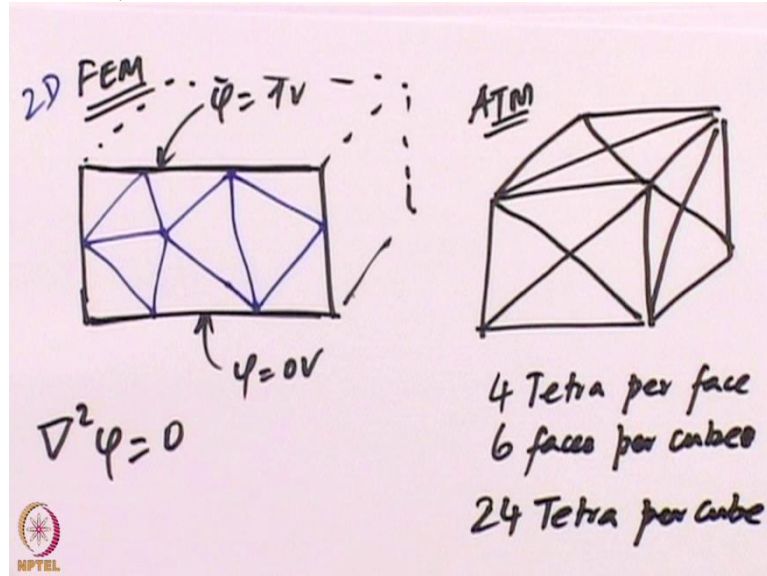 2D FEM
φ = 1V
φ = 0V
∇²φ = 0
ATM
4 Tetra per face
6 faces per cube
24 Tetra per cube
NPTEL